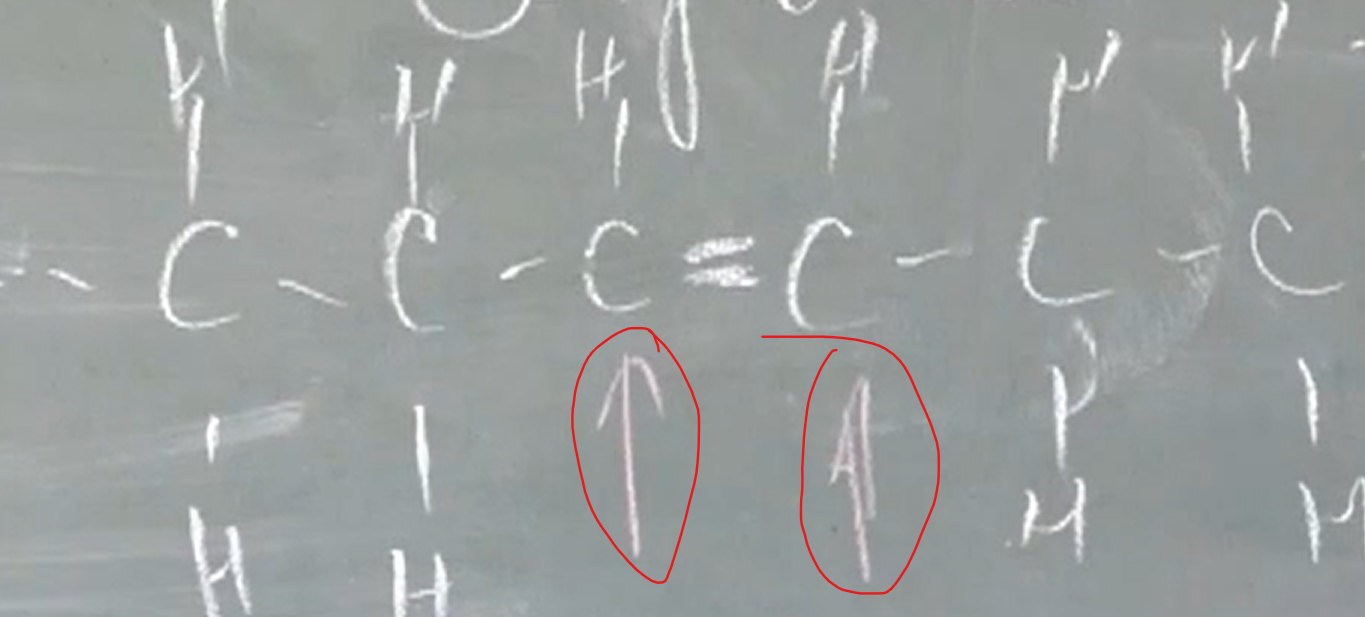 H H H H H H
- C - C - C = C - C - C
H H H H